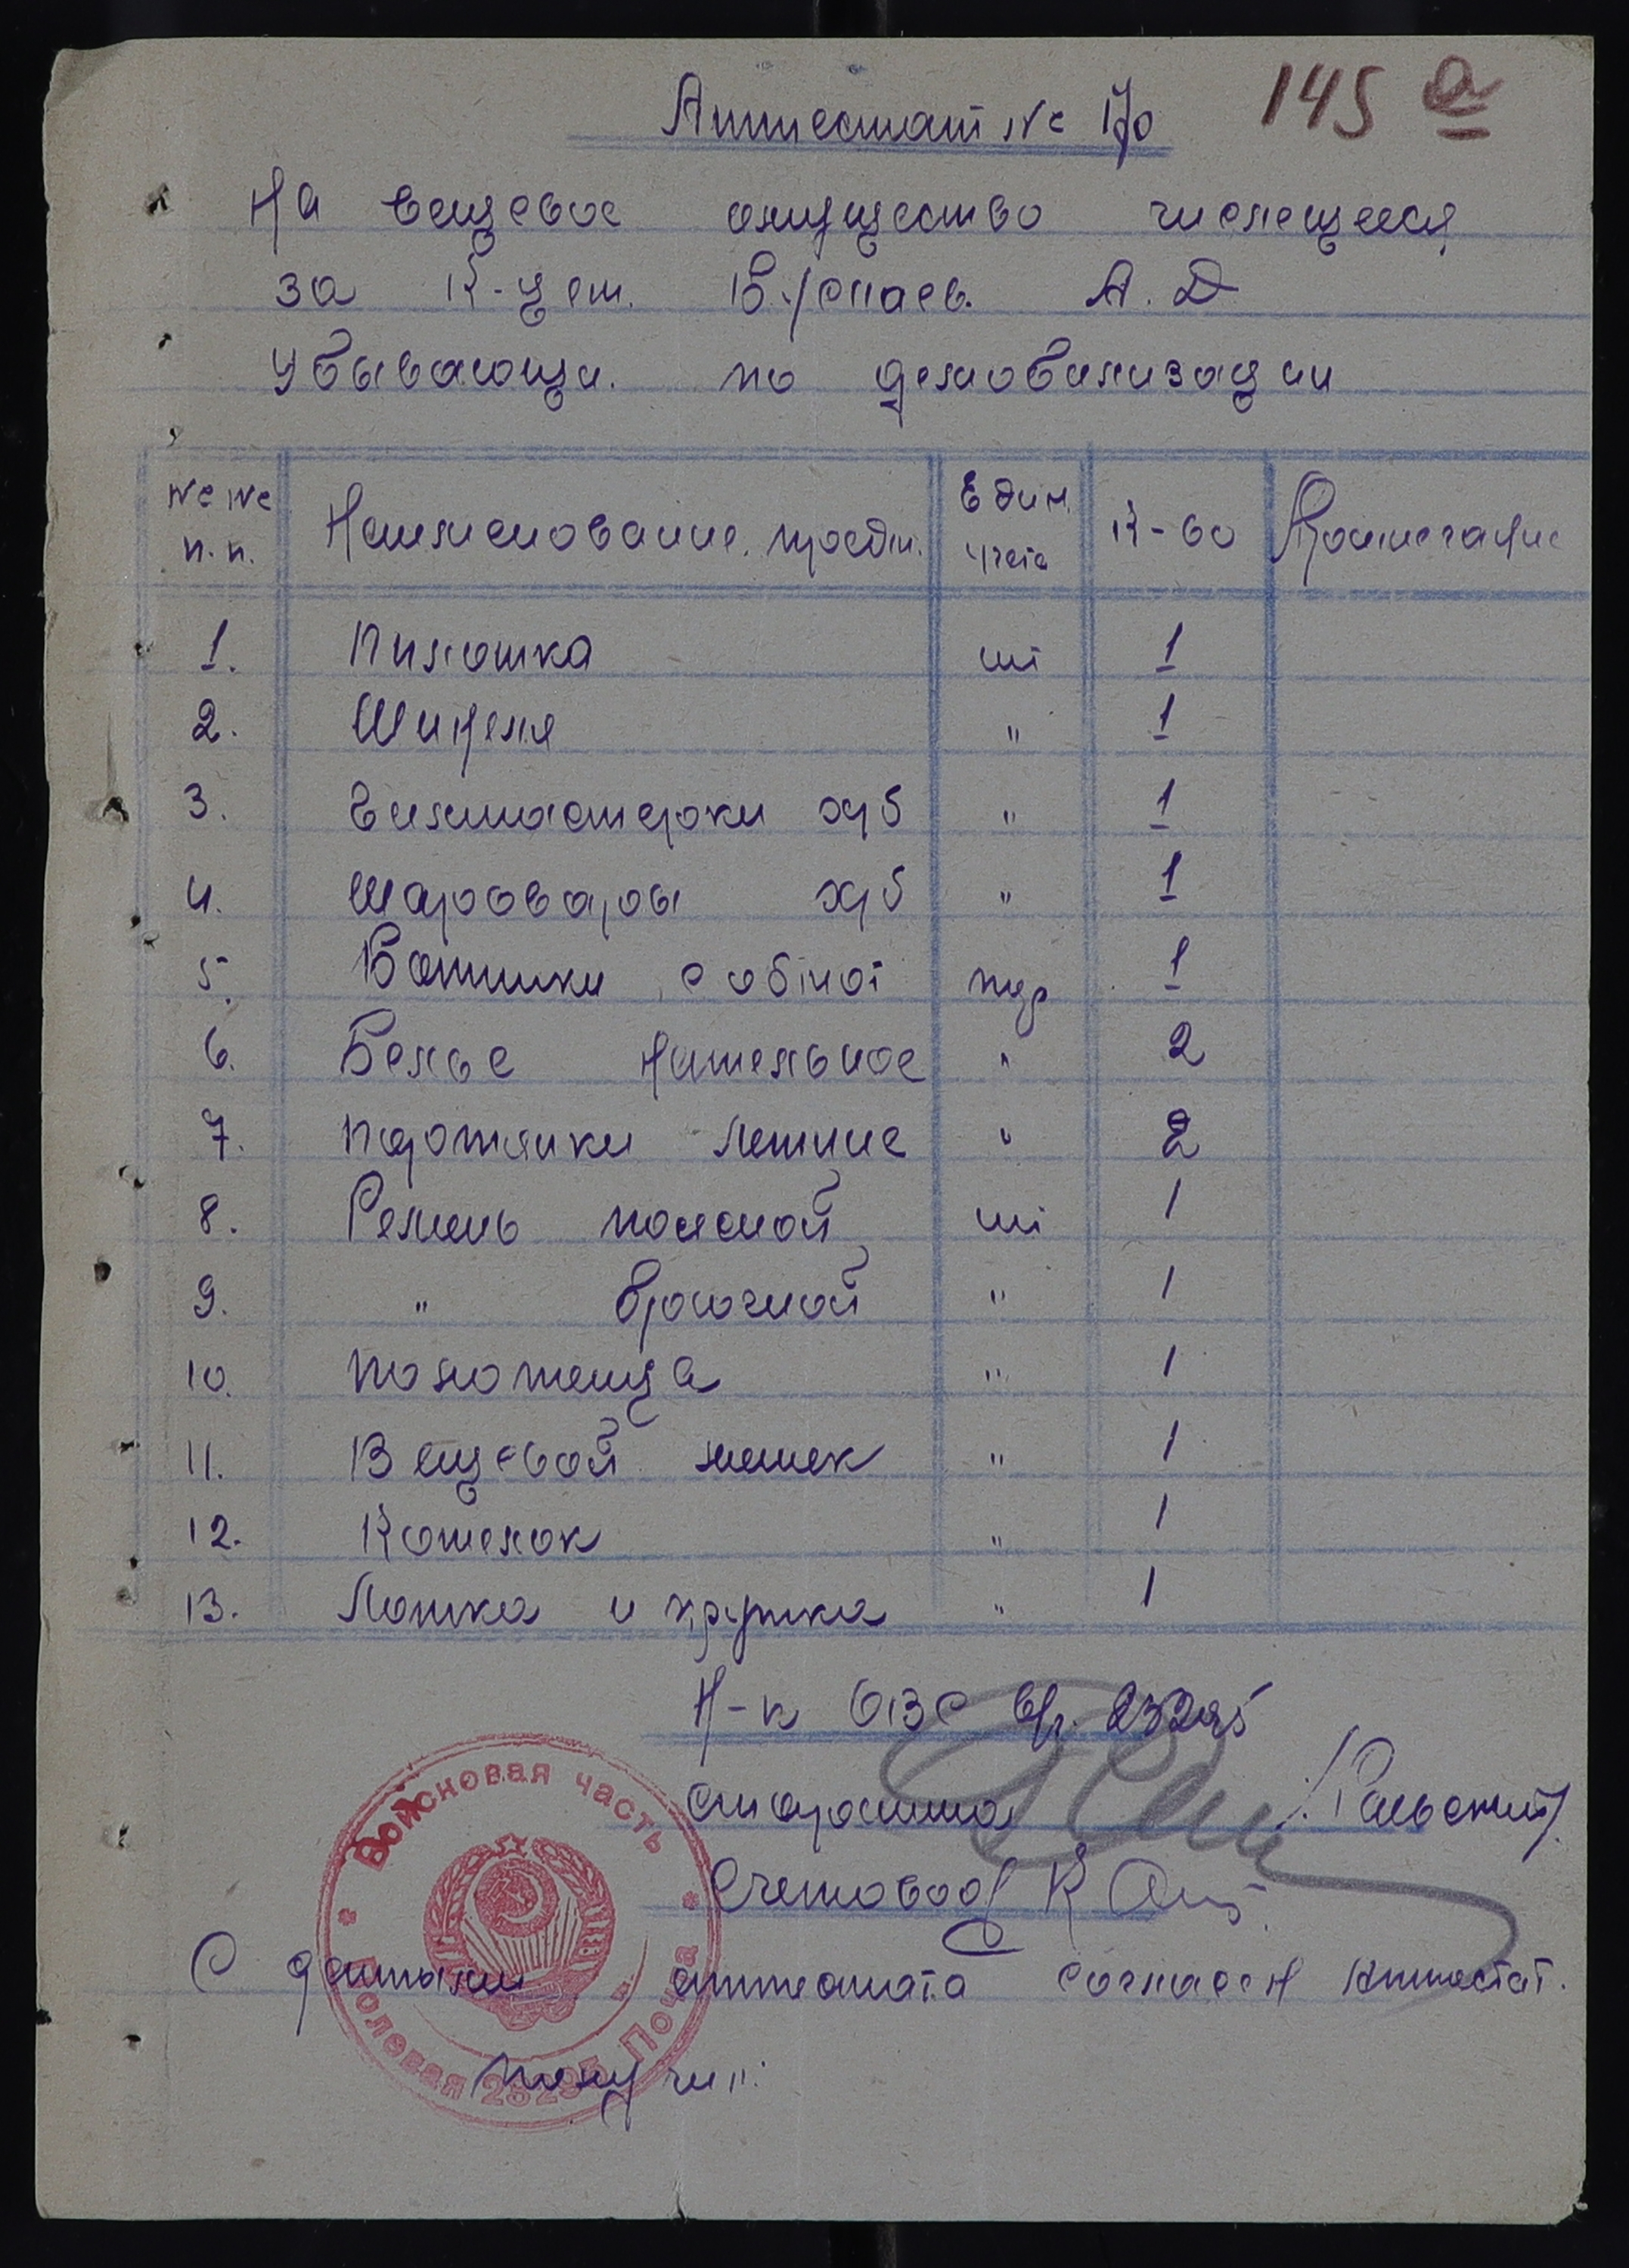 145 а
Аттестат № 170
На вещевое имущество числещееся
за К-цем. А. Д
убывающи. по демобилизации
№ № Наименование предм. Един. К-во Примечание
п. п. учета
1. Пилотка шт 1
2. Шинеля " 1
3. Гимнастерки х/б " 1
4. Шаровары х/б " 1
5. Ботинки с обмот пар 1
6. Белье нательное " 2
7. Портянки летние " 2
8. Ремень поясной шт 1
9. " брючной " 1
10. Полотенца " 1
11. Вещевой мешек " 1
12. Котелок " 1
13. Ложка и кружка " 1
Н-к ОВС в/ч. 23295
старшина
Счетовод
С данными аттестата согласен Аттестат.
получил:
Войсковая часть
Полевая Почта 23295